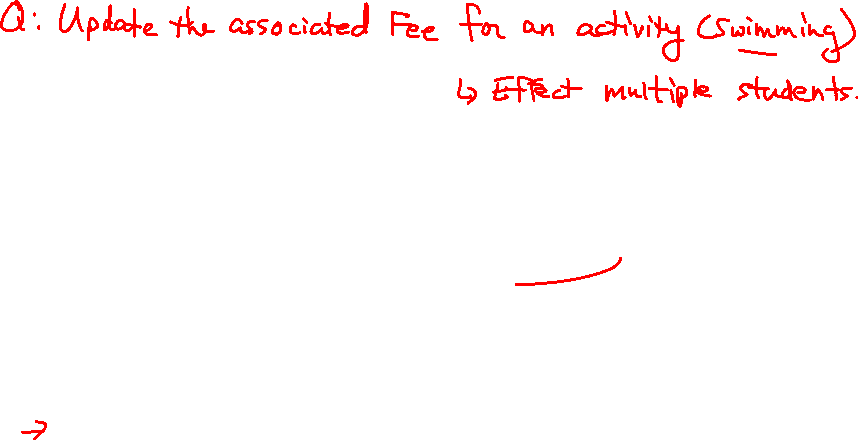 Q: Update the associated Fee for an activity (Swimming)
↳ Effect multiple students.
→